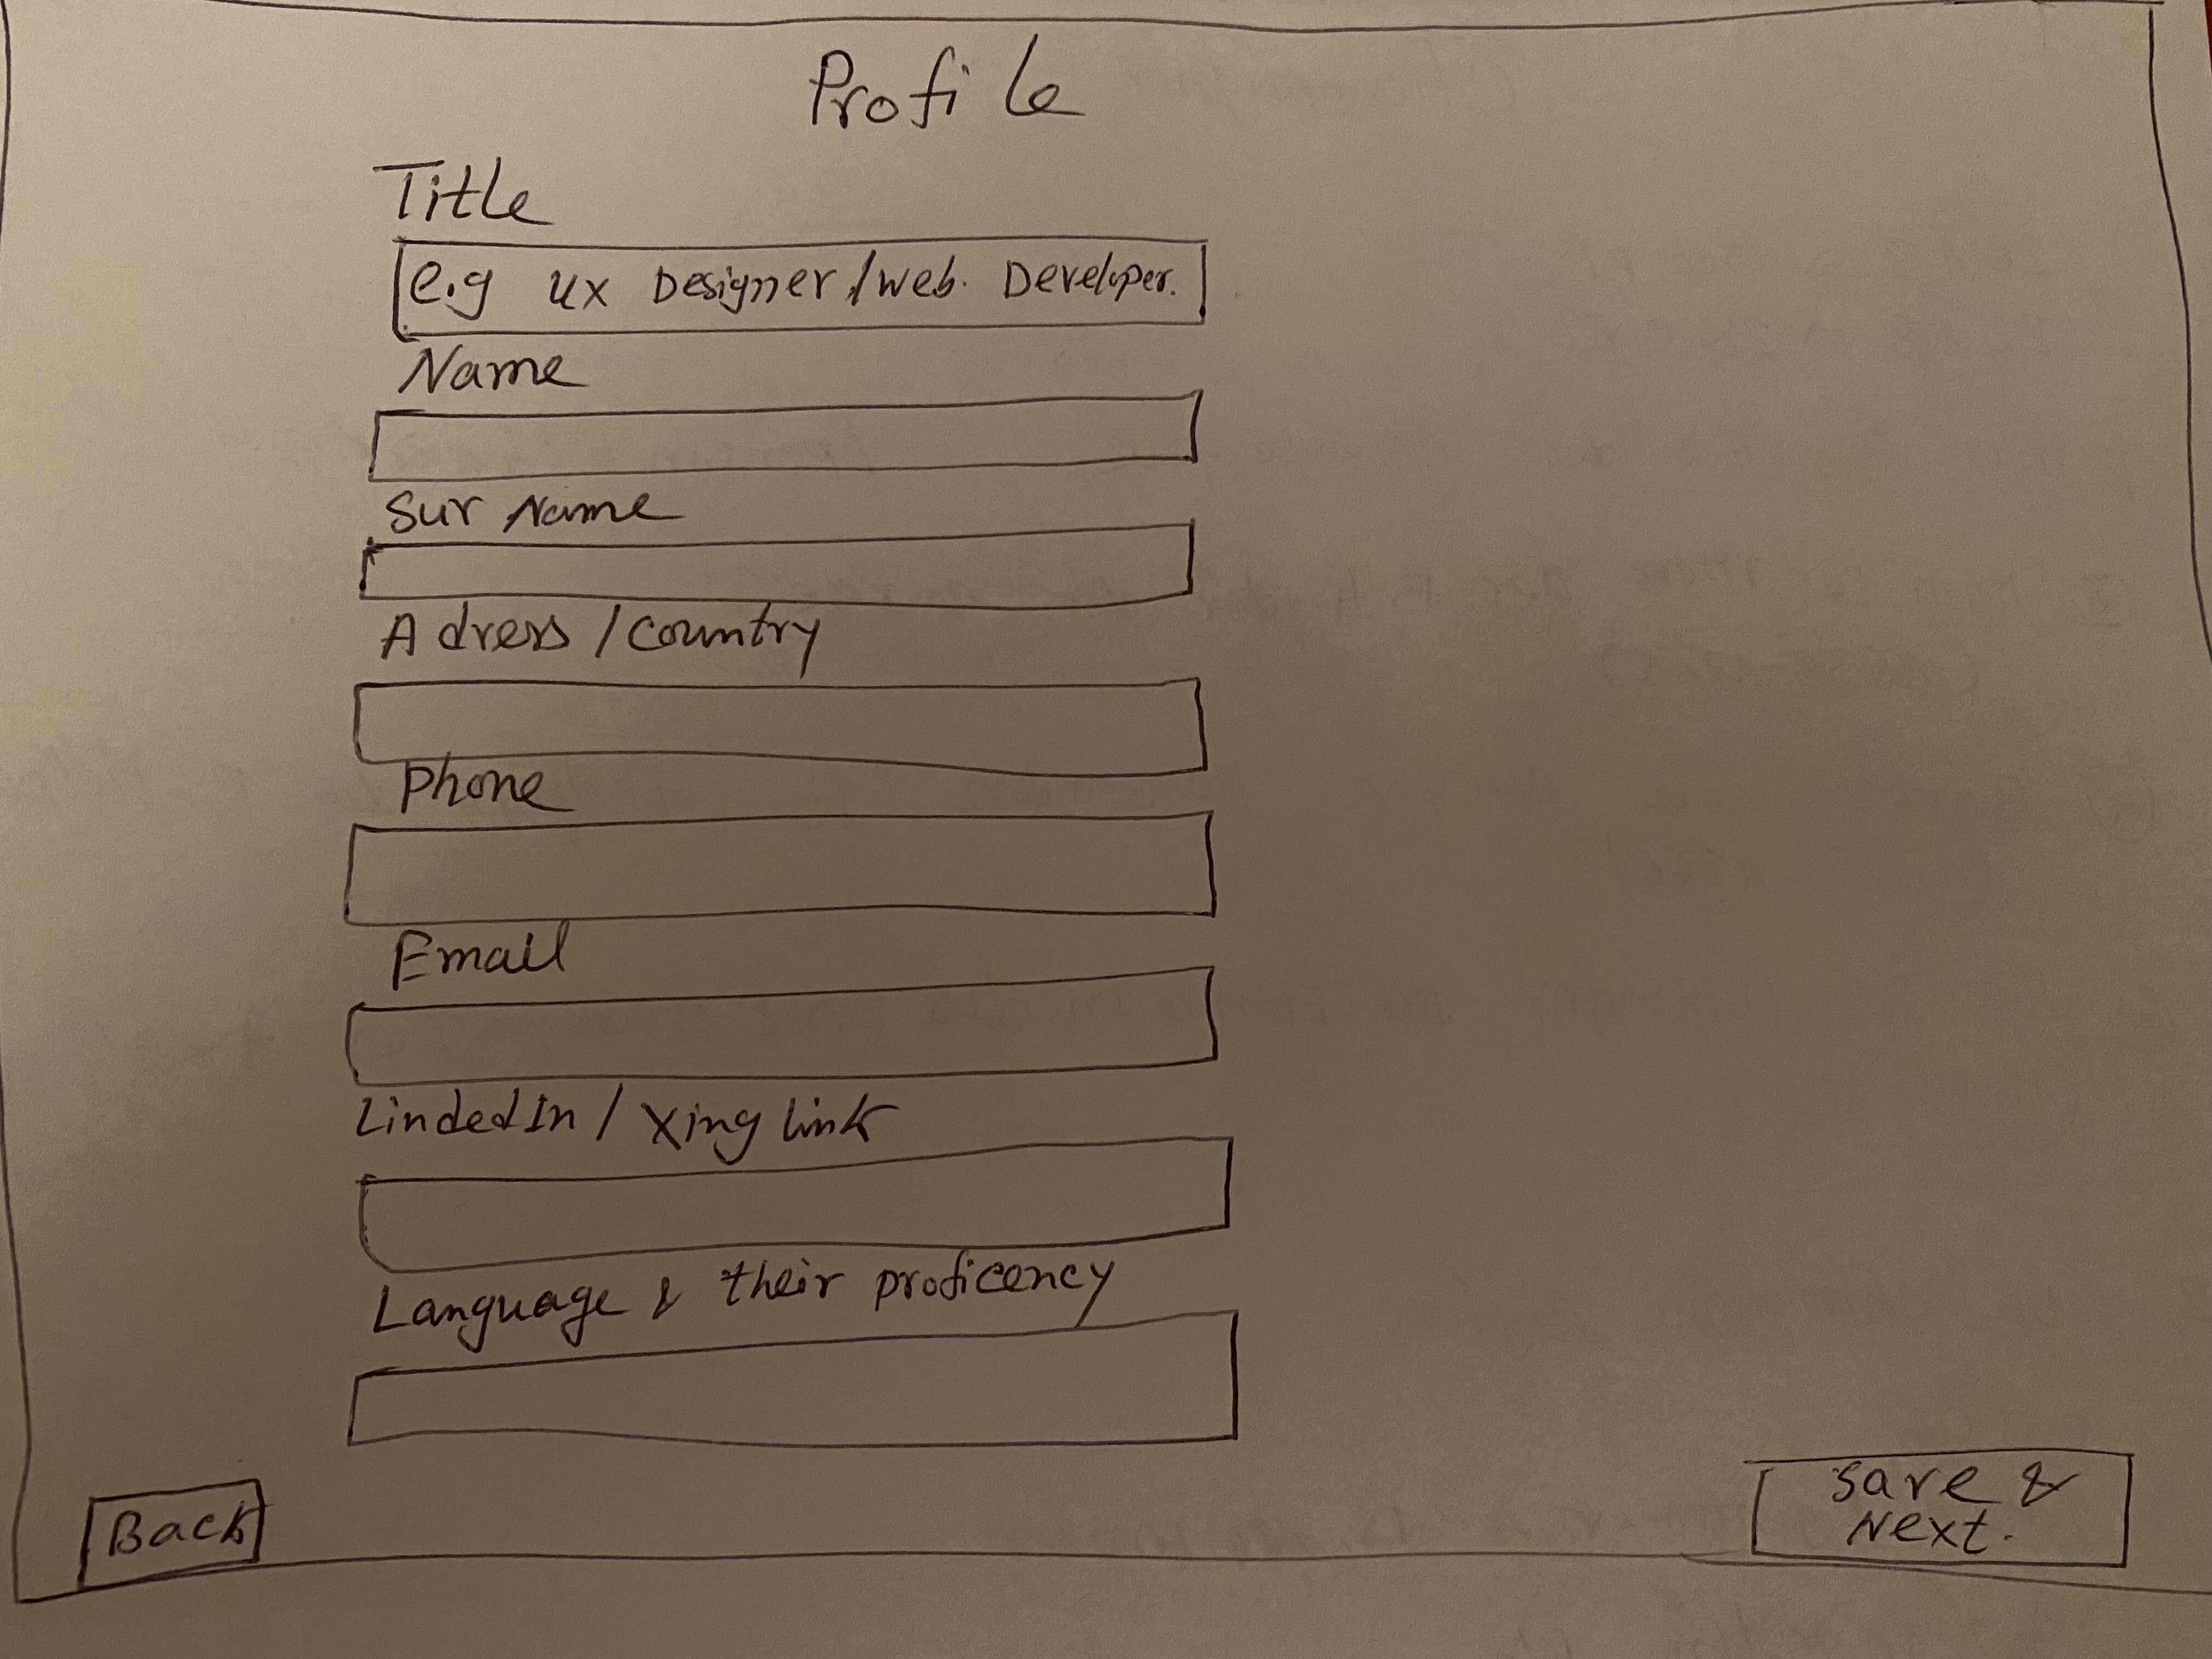 Profile
Title
e.g ux Designer / web. Developer.
Name
Sur Name
Adress / country
Phone
Email
LindedIn / Xing link
Language & their proficency
Back
Save &
Next.